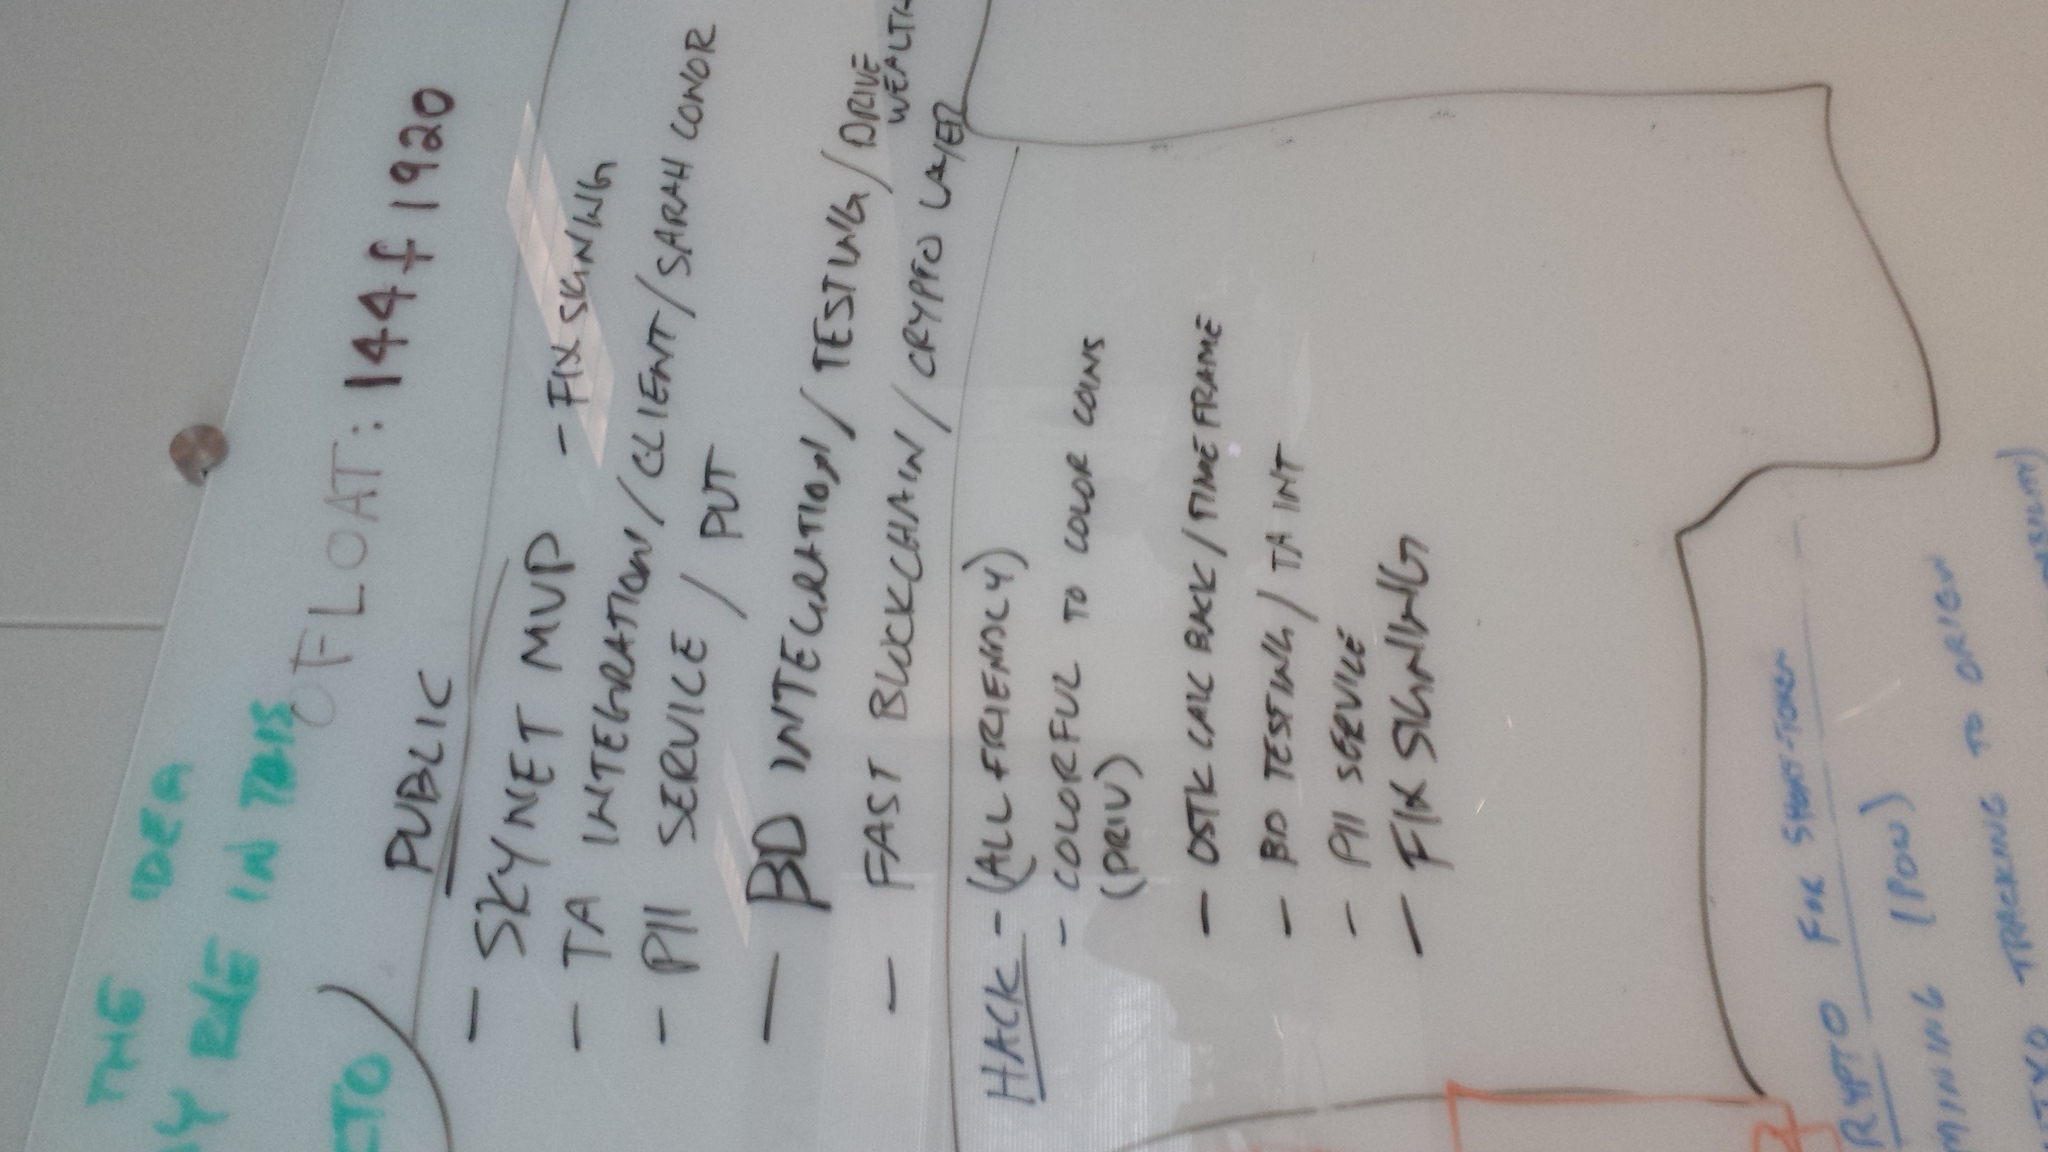 THE IDEA
IN THIS
CTO
FLOAT: 144f1920
PUBLIC
- SKYNET MVP - FIX SIGNING
- TA INTEGRATION / CLIENT / SARAH CONOR
- PII SERVICE / PUT
- BD INTEGRATION / TESTING / DRIVE
WEALTH
- FAST BLOCKCHAIN / CRYPTO LAYER
HACK - (ALL FRIENDLY)
- COLORFUL TO COLOR COINS
(PRIV)
- OSTK CALC BACK / TIME FRAME
- BD TESTING / TA INT
- PII SERVICE
- FIX SIGNING
RYPTO FOR SHORT-TOKEN
MINING (POW)
TRACKING TO ORIGIN